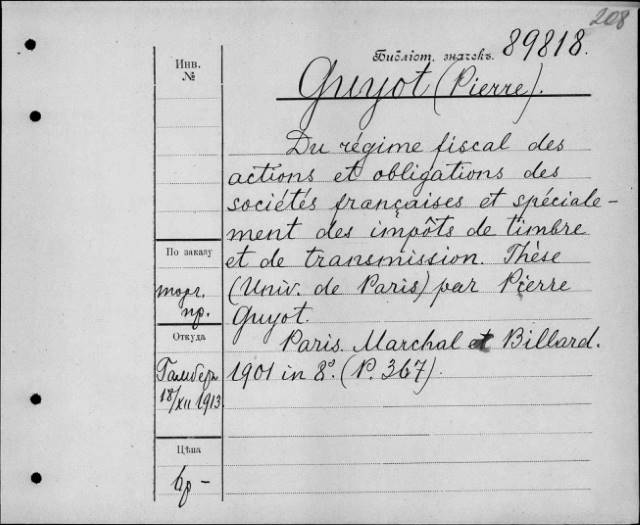 208
Библіот. значекъ. 89818.
Инв.
№
Guyot (Pierre).
Du régime fiscal des
actions et obligations des
sociétés françaises et spéciale-
ment des impôts de timbre
et de transmission. Thèse
(Univ. de Paris) par Pierre
Guyot.
Paris. Marchal et Billard.
1901 in 8º. (P. 367).
По заказу
торг.
пр.
Откуда
18/XII 1913.
Цѣна